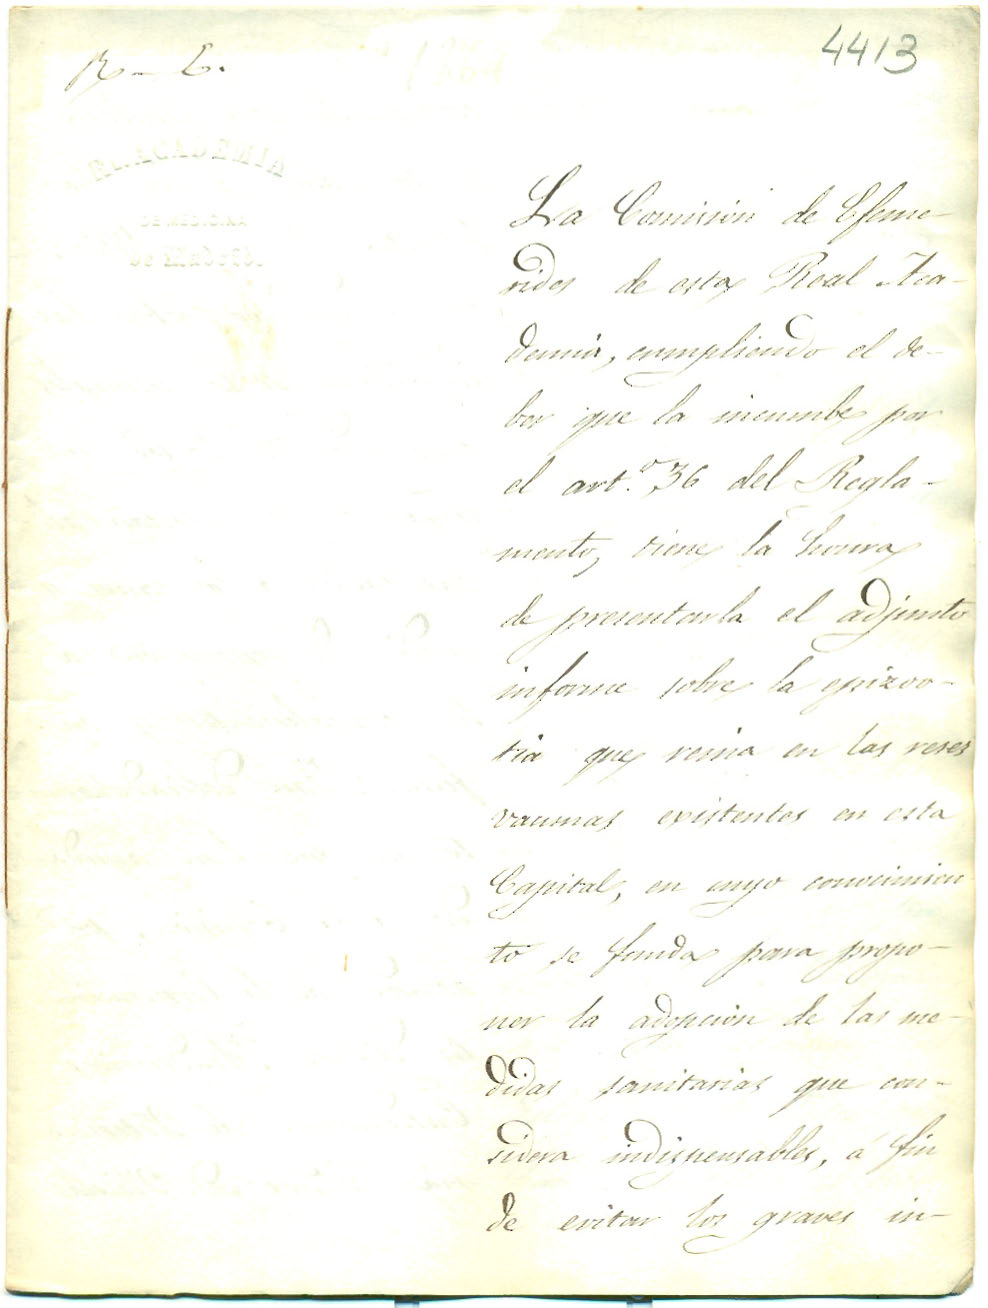 4413
R. ACADEMIA
DE MEDICINA
de Madrid.
La Comisión de Efeme-
rides de esta Real Aca-
demia, cumpliendo el de-
ber que la incumbe por
el art.º 36 del Regla-
mento, tiene la honra
de presentarla el adjunto
informe sobre la epizoo-
tia que reina en las reses
vacunas existentes en esta
Capital, en cuyo conocimien-
to se funda para propo-
ner la adopción de las me-
didas sanitarias que con-
sidera indispensables, á fin
de evitar los graves in-